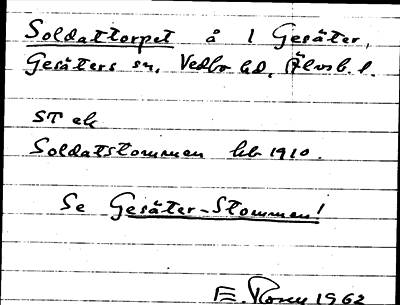 Soldattorpet å 1 Gesäter,
Gesäters sn, Vedbo hd, Älvsb. l.
ST ek
Soldatstommen hb 1910.
Se Gesäter-Stommen!
E. Rosen 1962